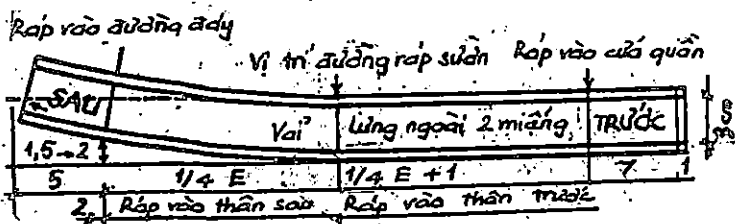 Ráp vào đường đáy
Vị trí đường ráp sườn
Ráp vào cửa quần
SAU
Vải
Lưng ngoài 2 miếng,
TRƯỚC
1,5→2
5
1/4 E
1/4 E +1
7
1
2
Ráp vào thân sau
Ráp vào thân trước